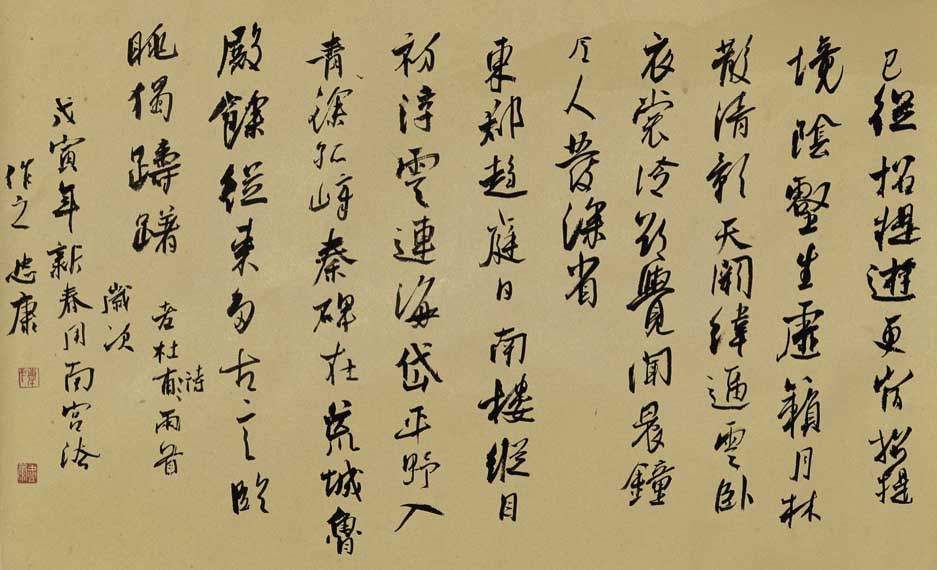 已從招提遊更宿招提
境陰壑生虛籟月林
散清影天闕緯逼雲卧
衣裳冷欲覺聞晨鐘
令人發深省
東郡趨庭日南樓縱目
初浮雲連海岱平野入
青徐孤嶂秦碑在荒城魯
殿餘從来多古意臨
眺獨躊躇
杜甫詩兩首
歲次
戊寅年新春用南宮法
作之 忠康